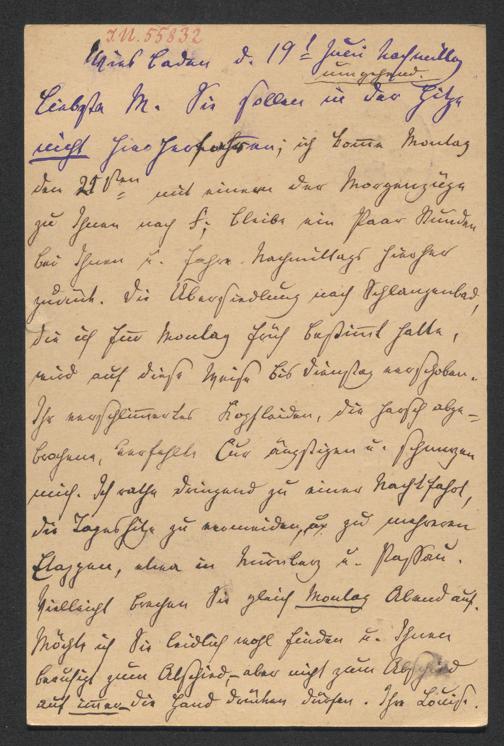 I.N. 55832
Wiesbaden d. 19t Juli Nachmittag
umgehend.
Liebste M. Sie sollen in der Hitze
nicht hierherfahren; ich komme Montag
den 21sten mit einem der Morgenzüge
zu Ihnen nach F., bleibe ein Paar Stunden
bei Ihnen u. fahre Nachmittags hierher
zurück. Die Übersiedlung nach Schlangenbad,
die ich für Montag früh bestimt hatte,
wird auf diese Weise bis Dienstag verschoben.
Ihr verschlimertes Kopfleiden, die harsch abge-
brochene, verfehlte Cur ängstigen u. schmerzen
mich. Ich rathe dringend zu einer Nachtfahrt,
die Tageshitze zu vermeiden, zu mehreren
Etappen, etwa in Nürnberg u. Passau.
Vielleicht brechen Sie gleich Montag Abend auf.
Möchte ich Sie leidlich wohl finden u. Ihnen
beruhigt zum Abschied, – aber nicht zum Abschied
auf imer – die Hand drücken dürfen. Ihre Louise.